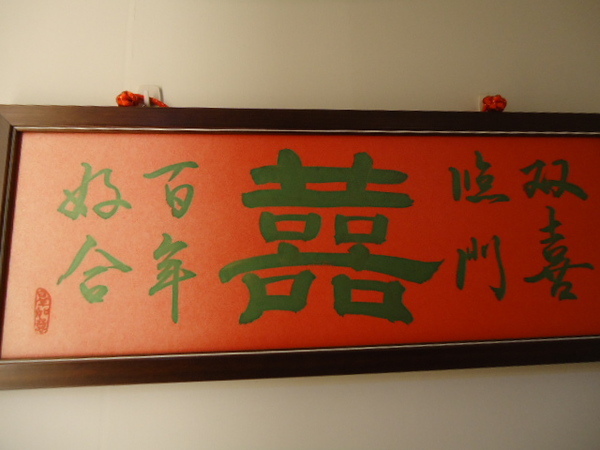 双喜
临门
囍
百年
好合